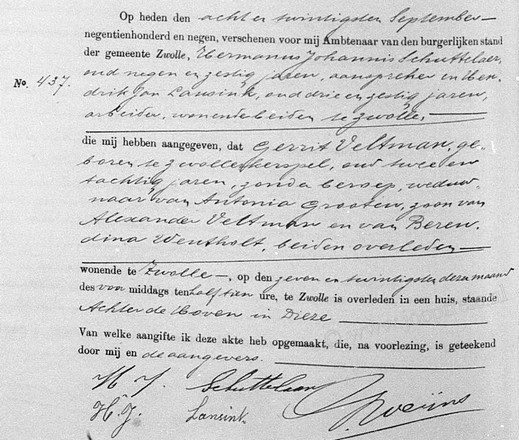 Op heden den acht en twintigsten September
negentienhonderd en negen, verschenen voor mij Ambtenaar van den burgerlijken stand
der gemeente Zwolle, Hermanus Johannis Schuttelaar,
No. 437. oud negen en zestig jaren, aanspreker en Hen
drik Jan Lansink, oud drie en zestig jaren,
arbeider, wonende beiden te Zwolle,
die mij hebben aangegeven, dat Gerrit Veltman, ge-
boren te Zwollerkerspel, oud twee en
tachtig jaren, zonder beroep, weduw-
naar van Antonia Grooten, zoon van
Alexander Veltman en van Beren
dina Wentholt, beiden overleden
wonende te Zwolle, op den zeven en twintigsten dezer maand
des voor middags ten half tien ure, te Zwolle is overleden in een huis, staande
Achter de Hoven in Dieze
Van welke aangifte ik deze akte heb opgemaakt, die, na voorlezing, is geteekend
door mij en de aangevers.
H. J. Schuttelaar
H. J. Lansink